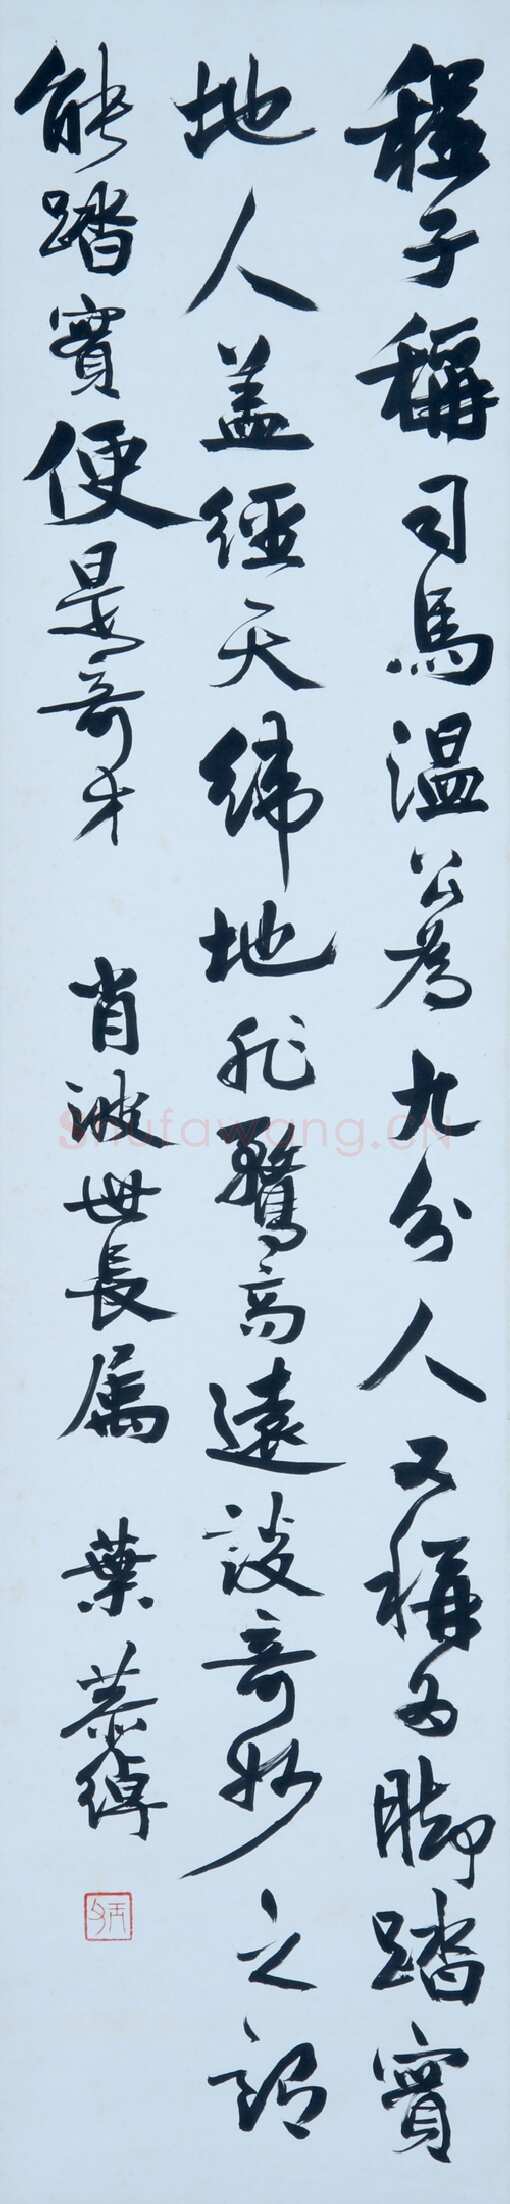 程子稱司馬溫公為九分人又稱為脚踏實
地人蓋經天緯地非騖高遠談奇妙之謂
能踏實便是奇才 肖波世長属 葉恭綽
Shufawang.CN